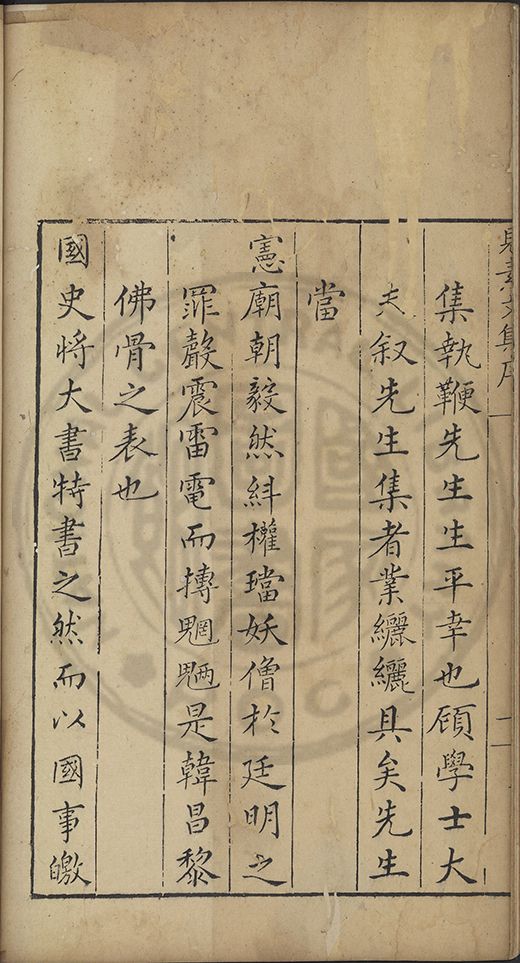 集執鞭先生生平幸也頋學士大
夫叙先生集者業纚纚具矣先生
當
憲廟朝毅然糾權璫妖僧於廷明之
罪聲震雷電而摶魍魎是韓昌黎
佛骨之表也
國史將大書特書之然而以國事皦